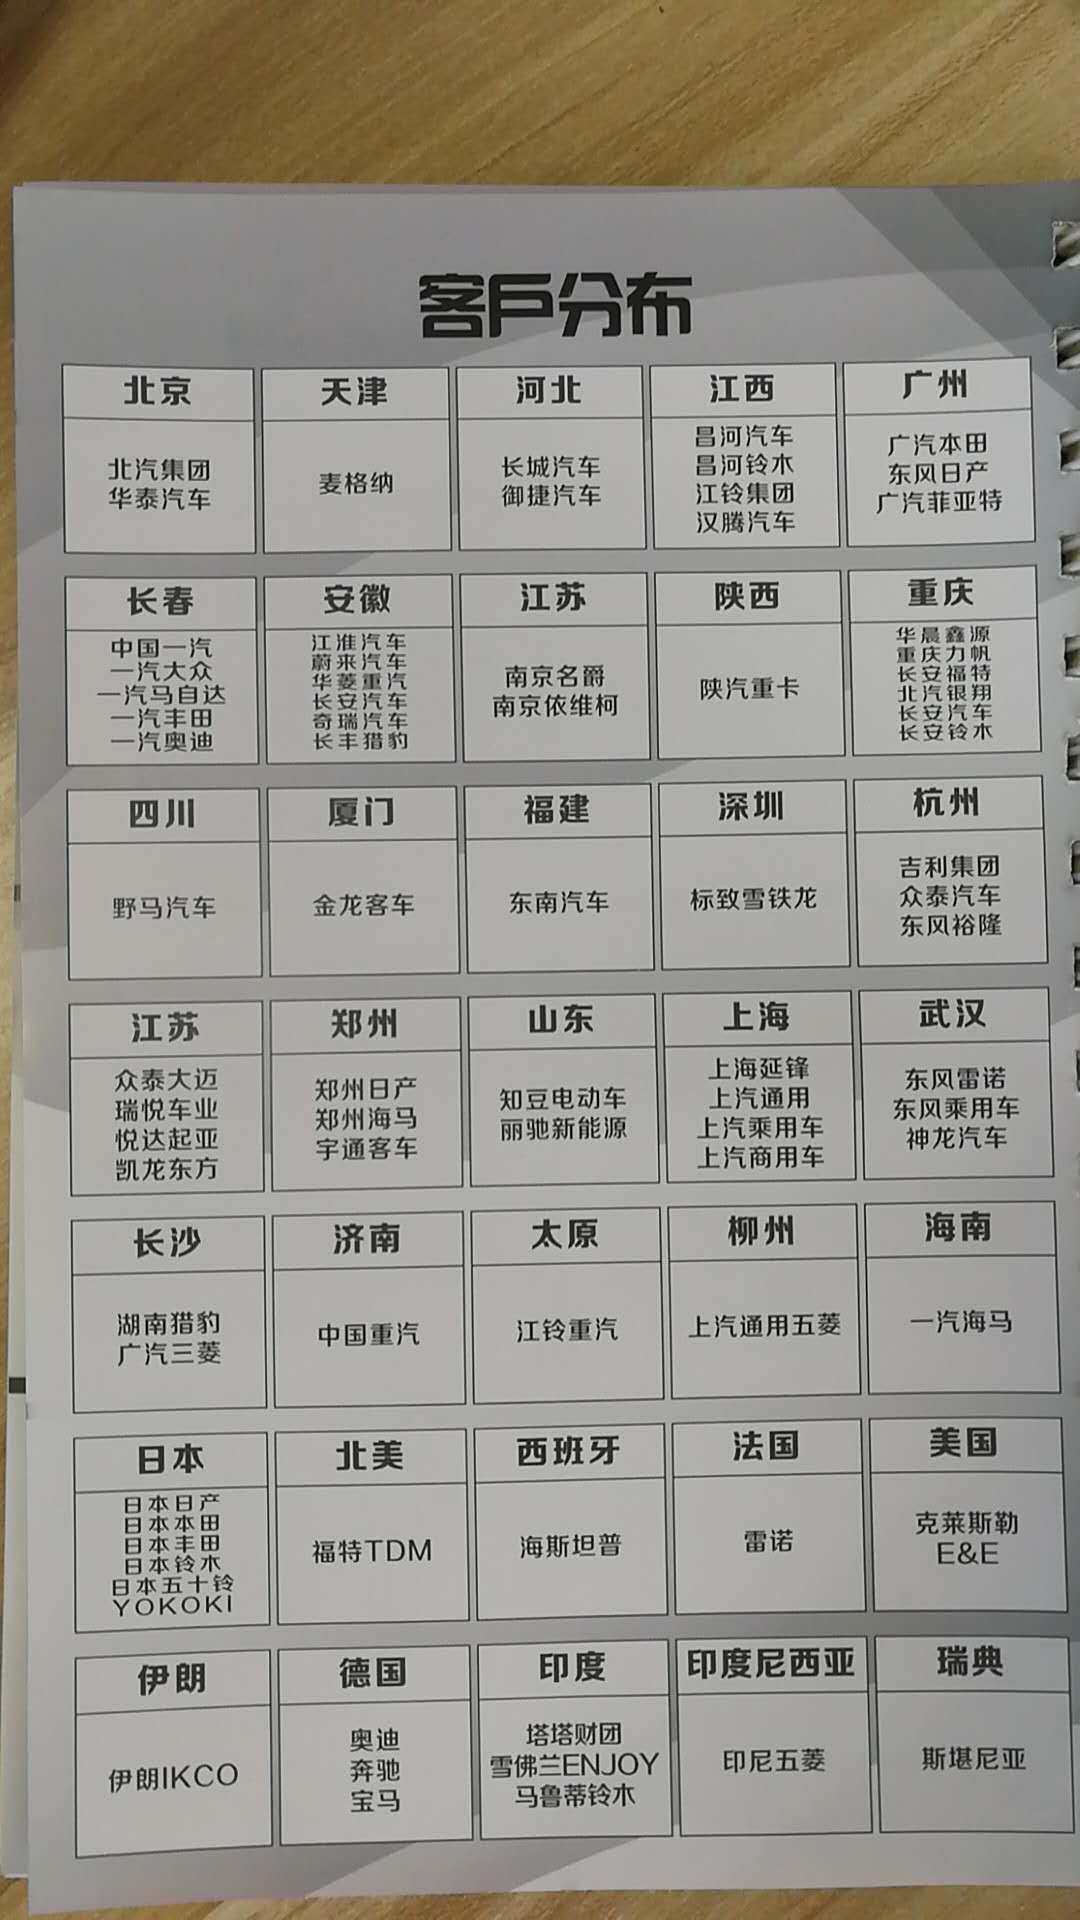 客戶分布
北京
北汽集团
华泰汽车
天津
麦格纳
河北
长城汽车
御捷汽车
江西
昌河汽车
昌河铃木
江铃集团
汉腾汽车
广州
广汽本田
东风日产
广汽菲亚特
长春
中国一汽
一汽大众
一汽马自达
一汽丰田
一汽奥迪
安徽
江淮汽车
蔚来汽车
华菱重汽
长安汽车
奇瑞汽车
长丰猎豹
江苏
南京名爵
南京依维柯
陕西
陕汽重卡
重庆
华晨鑫源
重庆力帆
长安福特
北汽银翔
长安汽车
长安铃木
四川
野马汽车
厦门
金龙客车
福建
东南汽车
深圳
标致雪铁龙
杭州
吉利集团
众泰汽车
东风裕隆
江苏
众泰大迈
瑞悦车业
悦达起亚
凯龙东方
郑州
郑州日产
郑州海马
宇通客车
山东
知豆电动车
丽驰新能源
上海
上海延锋
上汽通用
上汽乘用车
上汽商用车
武汉
东风雷诺
东风乘用车
神龙汽车
长沙
湖南猎豹
广汽三菱
济南
中国重汽
太原
江铃重汽
柳州
上汽通用五菱
海南
一汽海马
日本
日本日产
日本本田
日本丰田
日本铃木
日本五十铃
YOKOKI
北美
福特TDM
西班牙
海斯坦普
法国
雷诺
美国
克莱斯勒
E&E
伊朗
伊朗IKCO
德国
奥迪
奔驰
宝马
印度
塔塔财团
雪佛兰ENJOY
马鲁蒂铃木
印度尼西亚
印尼五菱
瑞典
斯堪尼亚